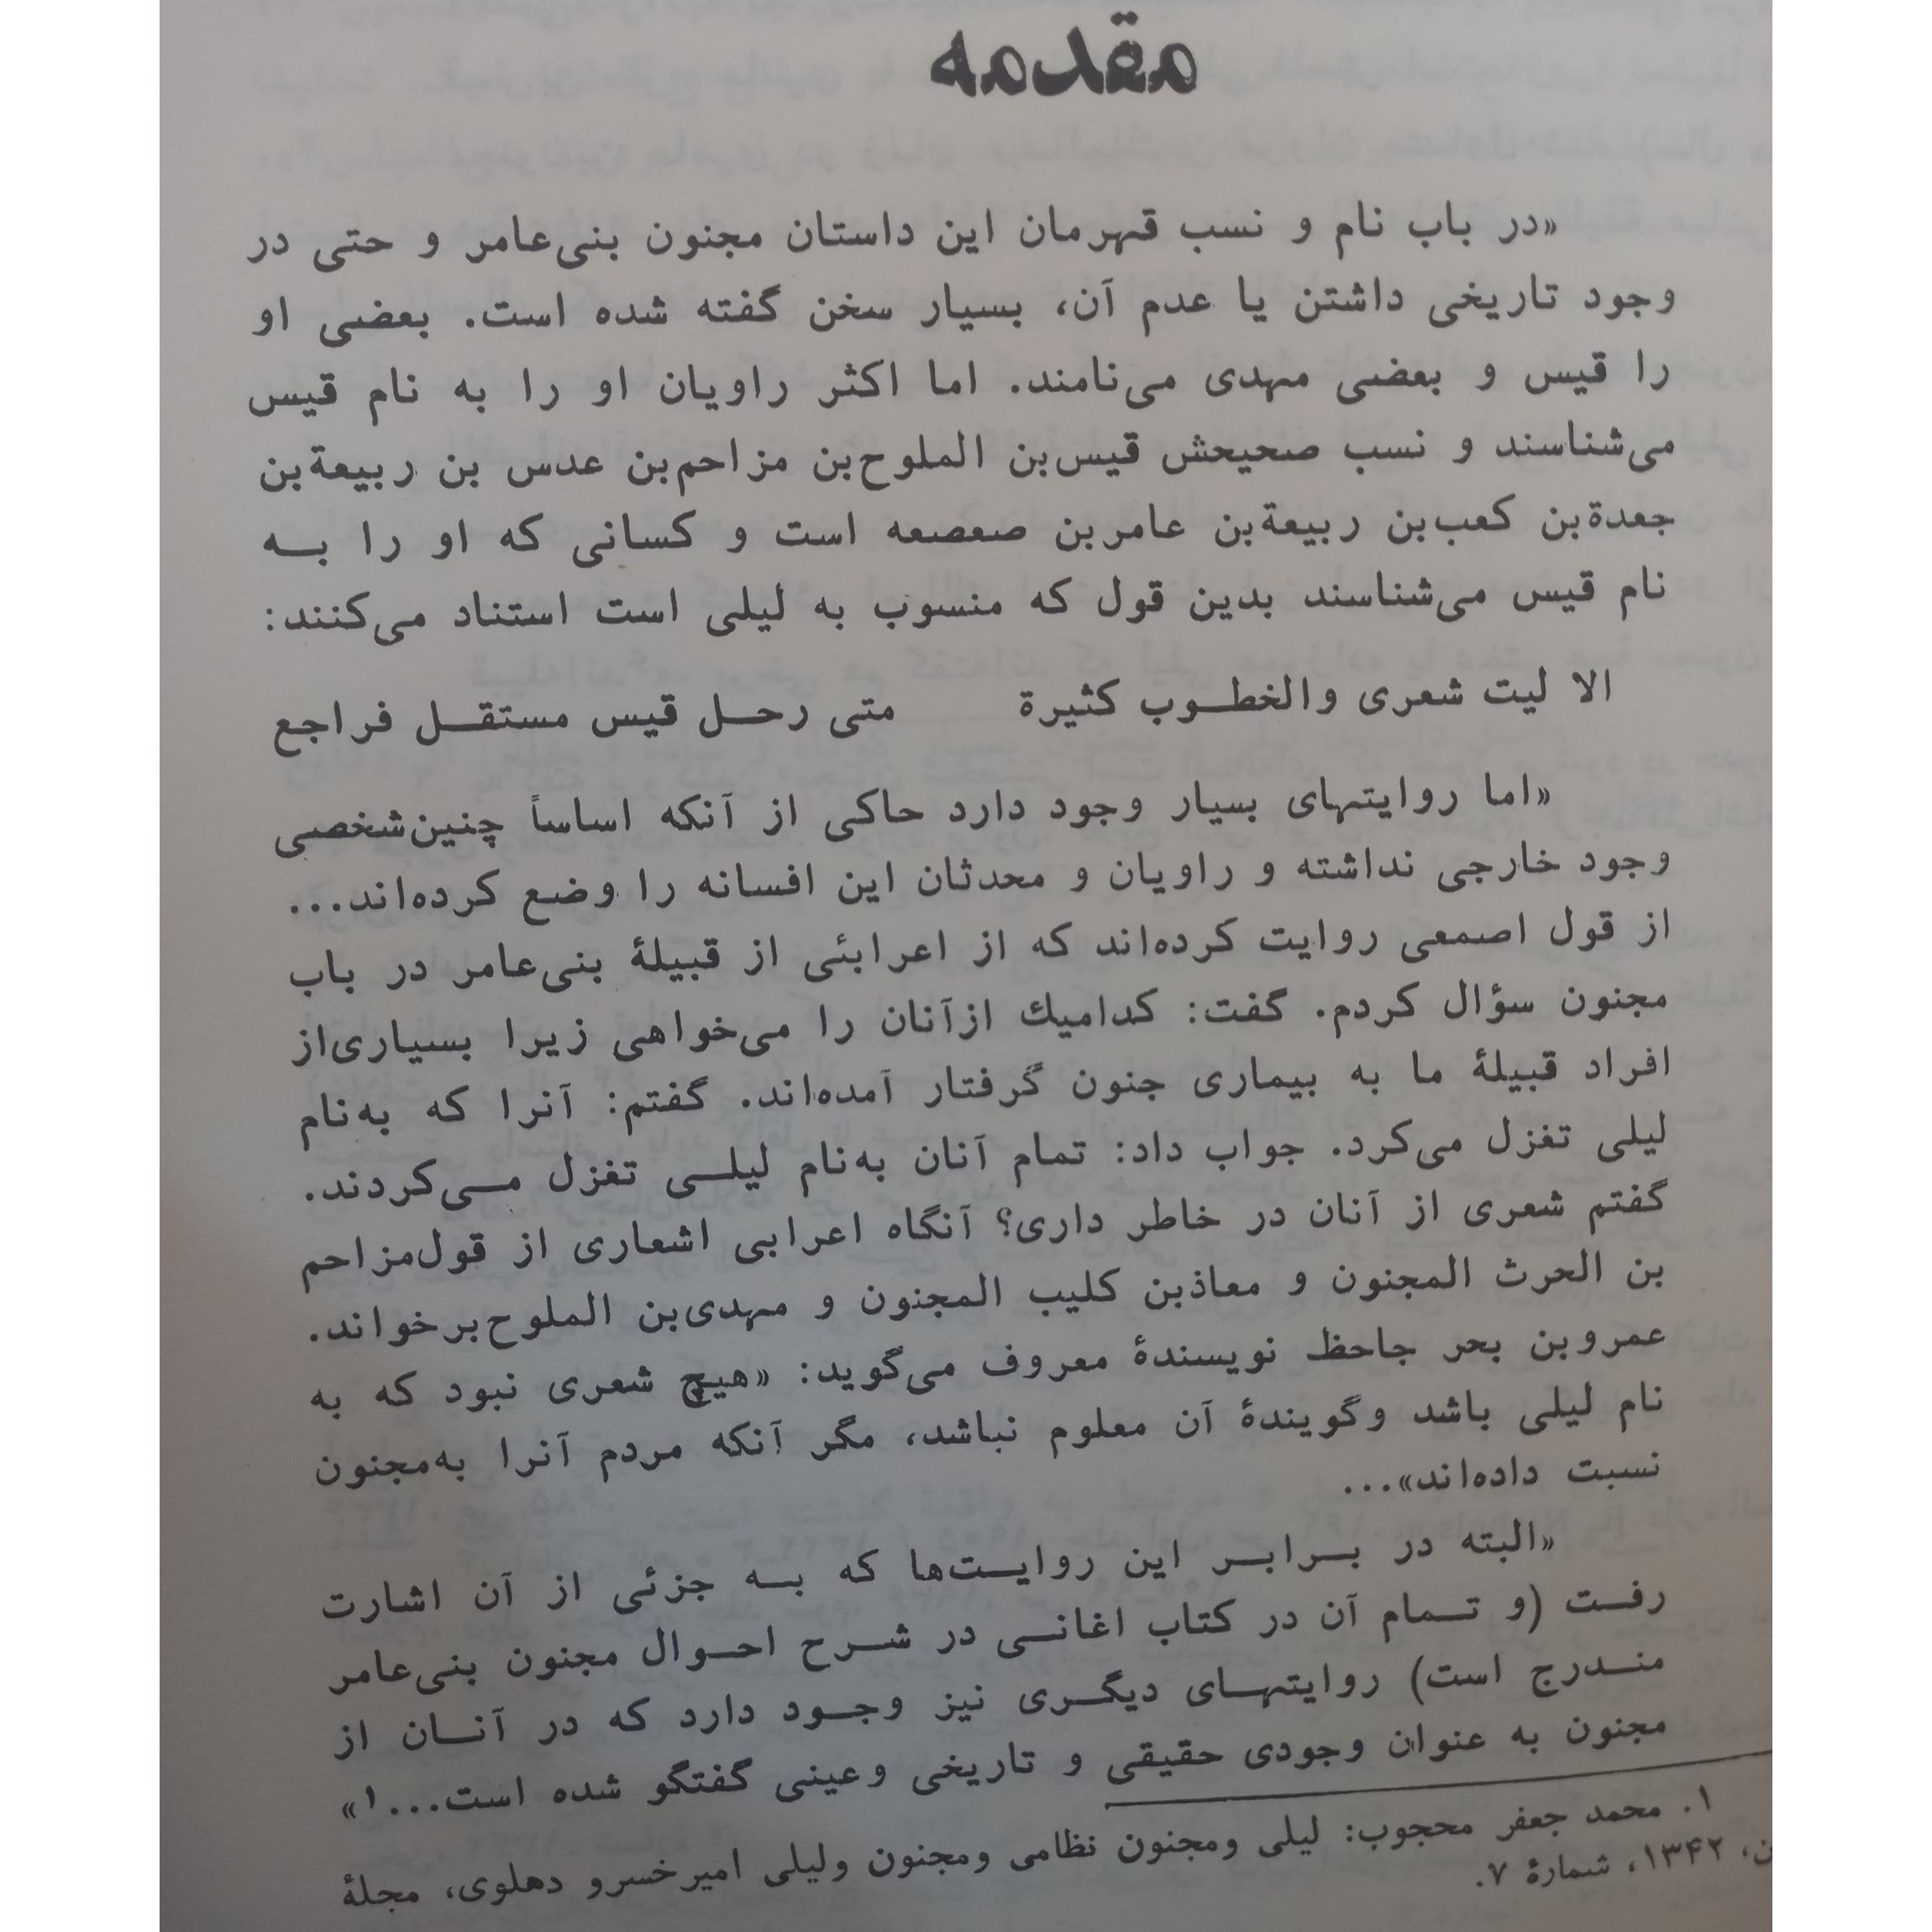 مقدمه
«در باب نام و نسب قهرمان این داستان مجنون بنی‌عامر و حتی در
وجود تاریخی داشتن یا عدم آن، بسیار سخن گفته شده است. بعضی او
را قیس و بعضی مهدی می‌نامند. اما اکثر راویان او را به نام قیس
می‌شناسند و نسب صحیحش قیس‌بن الملوح‌بن مزاحم‌بن عدس بن ربیعة‌بن
جعدة‌بن کعب‌بن ربیعة‌بن عامربن صعصعه است و کسانی که او را به
نام قیس می‌شناسند بدین قول که منسوب به لیلی است استناد می‌کنند:
الا لیت شعری والخطوب کثیرة متی رحل قیس مستقل فراجع
«اما روایتهای بسیار وجود دارد حاکی از آنکه اساساً چنین‌شخصی
وجود خارجی نداشته و راویان و محدثان این افسانه را وضع کرده‌اند...
از قول اصمعی روایت کرده‌اند که از اعرابئی از قبیلهٔ بنی‌عامر در باب
مجنون سؤال کردم. گفت: کدامیك ازآنان را می‌خواهی زیرا بسیاری‌از
افراد قبیلهٔ ما به بیماری جنون گرفتار آمده‌اند. گفتم: آنرا که به‌نام
لیلی تغزل می‌کرد. جواب داد: تمام آنان به‌نام لیلی تغزل می‌کردند.
گفتم شعری از آنان در خاطر داری؟ آنگاه اعرابی اشعاری از قول‌مزاحم
بن الحرث المجنون و معاذبن کلیب المجنون و مهدی‌بن الملوح‌برخواند.
عمروبن بحر جاحظ نویسندهٔ معروف می‌گوید: «هیچ شعری نبود که به
نام لیلی باشد وگویندهٔ آن معلوم نباشد، مگر آنکه مردم آنرا به‌مجنون
نسبت داده‌اند»...
«البته در برابر این روایت‌ها که به جزئی از آن اشارت
رفت (و تمام آن در کتاب اغانی در شرح احوال مجنون بنی‌عامر
مندرج است) روایتهای دیگری نیز وجود دارد که در آنان از
مجنون به عنوان وجودی حقیقی و تاریخی وعینی گفتگو شده است...۱»
۱. محمد جعفر محجوب: لیلی ومجنون نظامی ومجنون ولیلی امیرخسرو دهلوی، مجلهٔ
۱۳۴۲، شمارهٔ ۷.